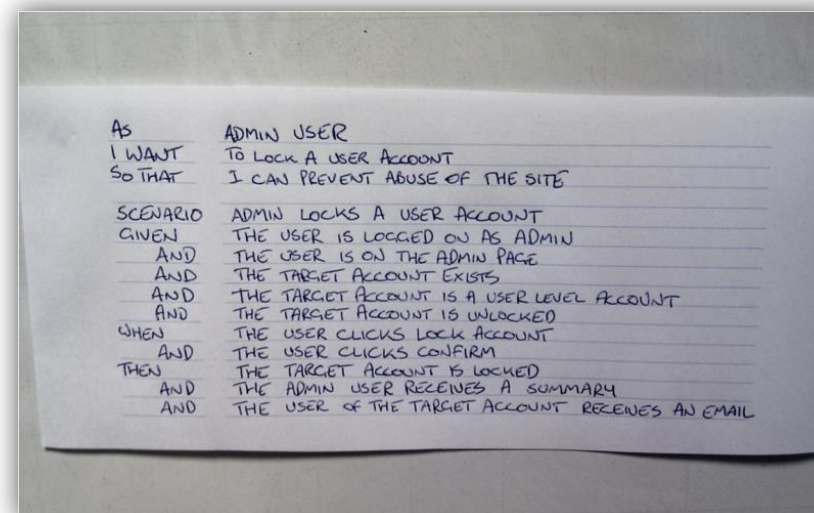 AS ADMIN USER
I WANT TO LOCK A USER ACCOUNT
SO THAT I CAN PREVENT ABUSE OF THE SITE
SCENARIO ADMIN LOCKS A USER ACCOUNT
GIVEN THE USER IS LOGGED ON AS ADMIN
AND THE USER IS ON THE ADMIN PAGE
AND THE TARGET ACCOUNT EXISTS
AND THE TARGET ACCOUNT IS A USER LEVEL ACCOUNT
AND THE TARGET ACCOUNT IS UNLOCKED
WHEN THE USER CLICKS LOCK ACCOUNT
AND THE USER CLICKS CONFIRM
THEN THE TARGET ACCOUNT IS LOCKED
AND THE ADMIN USER RECEIVES A SUMMARY
AND THE USER OF THE TARGET ACCOUNT RECEIVES AN EMAIL